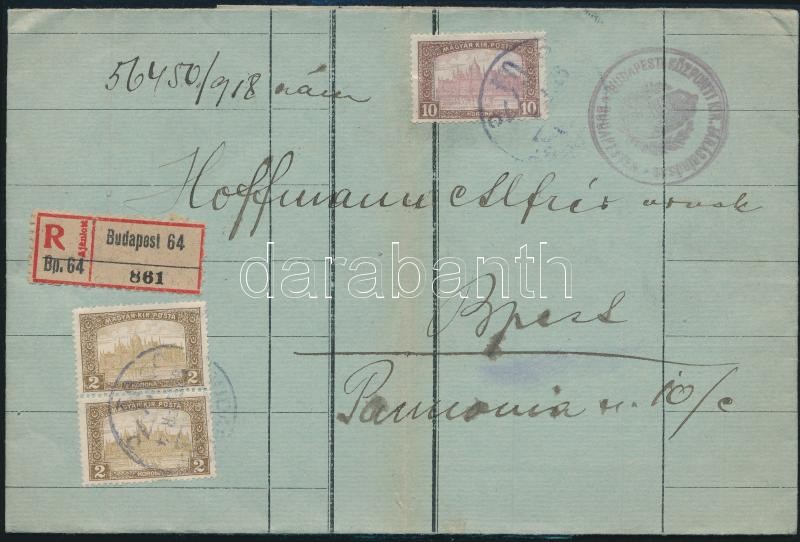 56450/918 szám
MAGYAR KIR. POSTA
10 10
KORONA
BUDAPESTI KÖZPONTI KIR. JÁRÁSBÍRÓSÁG
Hoffmann Alfréd úrnak
R Ajánlott Budapest 64
Bp. 64 861
darabanth
Bpest
MAGYAR KIR. POSTA
2 2
KORONA
Pannonia u. 10/c
MAGYAR KIR. POSTA
2 2
KORONA